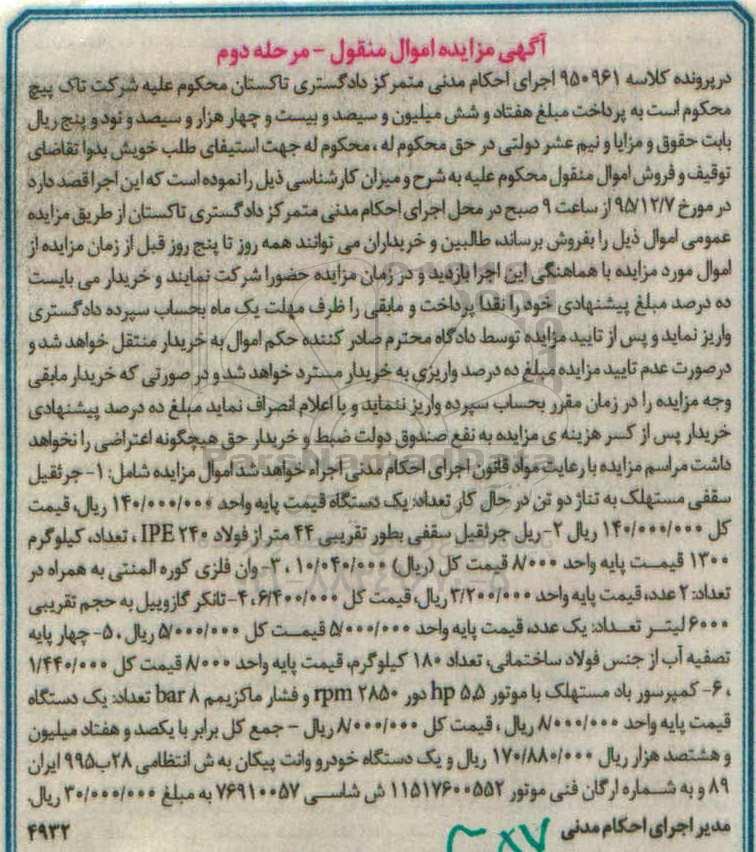 آگهی مزایده اموال منقول - مرحله دوم
در پرونده کلاسه ۹۵۰۹۶۱ اجرای احکام مدنی متمرکز دادگستری تاکستان محکوم علیه شرکت تاک پیچ
محکوم است به پرداخت مبلغ هفتاد و شش میلیون و سیصد و بیست و چهار هزار و سیصد و نود و پنج ریال
بابت حقوق و مزایا و نیم عشر دولتی در حق محکوم له ، محکوم له جهت استیفای طلب خویش بدوا تقاضای
توقیف و فروش اموال منقول محکوم علیه به شرح و میزان کارشناسی ذیل را نموده است که این اجرا قصد دارد
در مورخ ۹۵/۱۲/۷ از ساعت ۹ صبح در محل اجرای احکام مدنی متمرکز دادگستری تاکستان از طریق مزایده
عمومی اموال ذیل را بفروش برساند، طالبین و خریداران می توانند همه روز تا پنج روز قبل از زمان مزایده از
اموال مورد مزایده با هماهنگی این اجرا بازدید و در زمان مزایده حضورا شرکت نمایند و خریدار می بایست
ده درصد مبلغ پیشنهادی خود را نقدا پرداخت و مابقی را ظرف مهلت یک ماه بحساب سپرده دادگستری
واریز نماید و پس از تایید مزایده توسط دادگاه محترم صادر کننده حکم اموال به خریدار منتقل خواهد شد و
درصورت عدم تایید مزایده مبلغ ده درصد واریزی به خریدار مسترد خواهد شد و در صورتی که خریدار مابقی
وجه مزایده را در زمان مقرر بحساب سپرده واریز ننماید و یا اعلام انصراف نماید مبلغ ده درصد پیشنهادی
خریدار پس از کسر هزینه ی مزایده به نفع صندوق دولت ضبط و خریدار حق هیچگونه اعتراضی را نخواهد
داشت مراسم مزایده با رعایت مواد قانون اجرای احکام مدنی اجراء خواهد شد اموال مزایده شامل: ۱- جرثقیل
سقفی مستهلک به تناژ دو تن در حال کار تعداد: یک دستگاه قیمت پایه واحد ۱۴۰/۰۰۰/۰۰۰ ریال، قیمت
کل ۱۴۰/۰۰۰/۰۰۰ ریال ۲-ریل جرثقیل سقفی بطور تقریبی ۴۴ متر از فولاد IPE ۲۴۰ ، تعداد، کیلوگرم
۱۳۰۰ قیمت پایه واحد ۸/۰۰۰ قیمت کل (ریال) ۱۰/۰۴۰/۰۰۰ ، ۳-وان فلزی کوره المنتی به همراه در
تعداد: ۲ عدد، قیمت پایه واحد ۳/۲۰۰/۰۰۰ ریال، قیمت کل ۶/۴۰۰/۰۰۰، ۴-تانکر گازوییل به حجم تقریبی
۶۰۰۰ لیتر تعداد: یک عدد، قیمت پایه واحد ۵/۰۰۰/۰۰۰ قیمت کل ۵/۰۰۰/۰۰۰ ریال ، ۵- چهار پایه
تصفیه آب از جنس فولاد ساختمانی، تعداد ۱۸۰ کیلوگرم، قیمت پایه واحد ۸/۰۰۰ قیمت کل ۱/۴۴۰/۰۰۰
، ۶- کمپرسور باد مستهلک با موتور ۵.۵ hp دور ۲۸۵۰ rpm و فشار ماکزیمم ۸ bar تعداد: یک دستگاه
قیمت پایه واحد ۸/۰۰۰/۰۰۰ ریال ، قیمت کل ۸/۰۰۰/۰۰۰ ریال - جمع کل برابر با یکصد و هفتاد میلیون
و هشتصد هزار ریال ۱۷۰/۸۸۰/۰۰۰ ریال و یک دستگاه خودرو وانت پیکان به ش انتظامی ۲۸ب۹۹۵ ایران
۸۹ و به شماره ارگان فنی موتور ۱۱۵۱۷۶۰۰۵۵۲ ش شاسی ۷۶۹۱۰۰۵۷ به مبلغ ۳۰/۰۰۰/۰۰۰ ریال.
مدیر اجرای احکام مدنی ۴۹۳۲
ParsNamadData